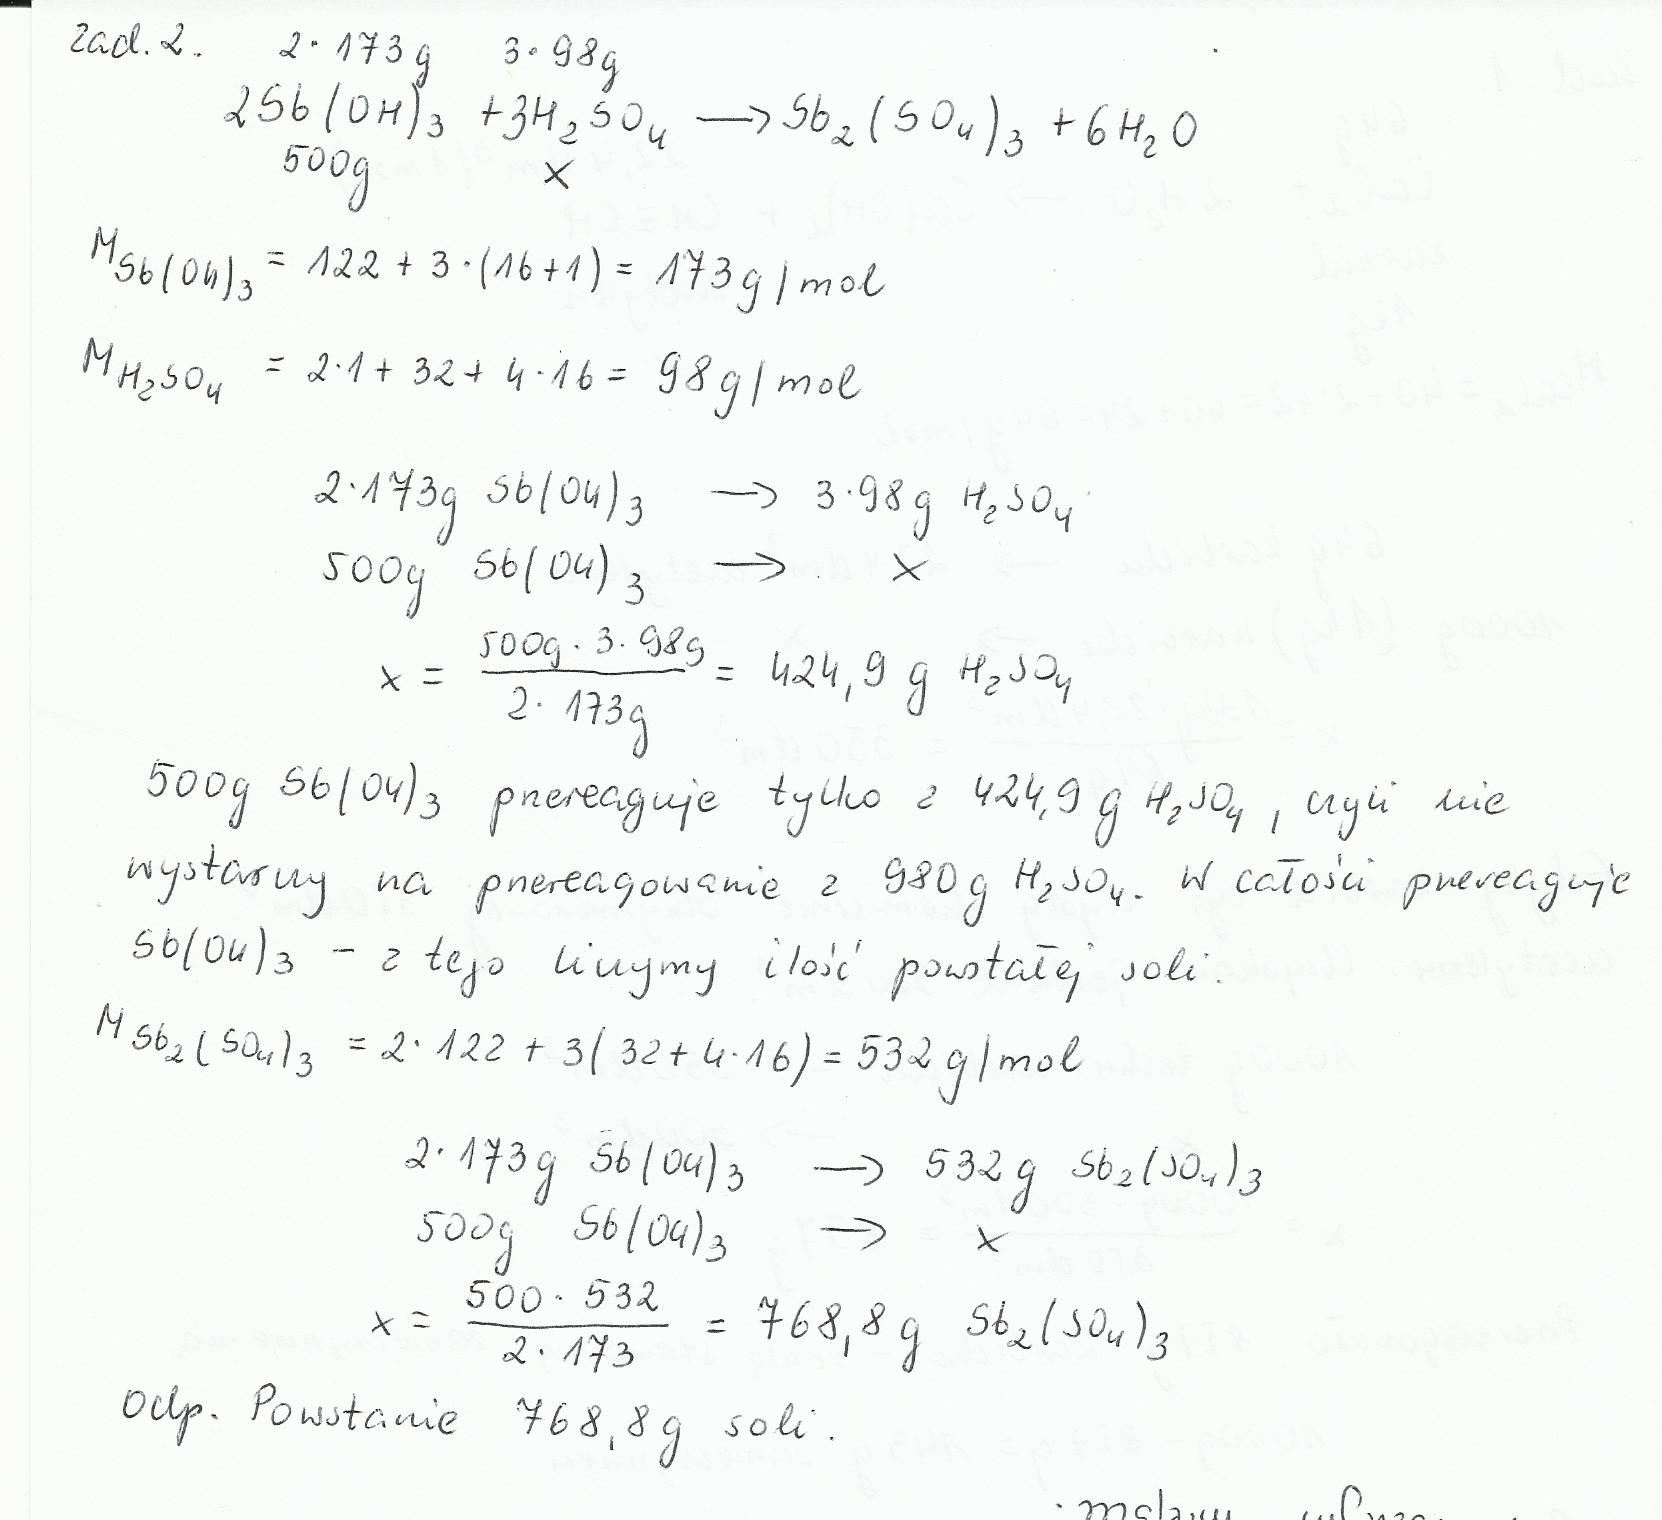 zad. 2. 2·173g 3·98g
2Sb(OH)₃ + 3H₂SO₄ → Sb₂(SO₄)₃ + 6H₂O
500g x
M Sb(OH)₃ = 122 + 3·(16+1) = 173g/mol
M H₂SO₄ = 2·1 + 32 + 4·16 = 98g/mol
2·173g Sb(OH)₃ → 3·98g H₂SO₄
500g Sb(OH)₃ → x
x = (500g·3·98g)/(2·173g) = 424,9 g H₂SO₄
500g Sb(OH)₃ przereaguje tylko z 424,9 g H₂SO₄, czyli nie
wystarczy na przereagowanie z 980g H₂SO₄. W całości przereaguje
Sb(OH)₃ – z tego liczymy ilość powstałej soli.
M Sb₂(SO₄)₃ = 2·122 + 3(32+4·16) = 532 g/mol
2·173g Sb(OH)₃ → 532g Sb₂(SO₄)₃
500g Sb(OH)₃ → x
x = (500·532)/(2·173) = 768,8g Sb₂(SO₄)₃
Odp. Powstanie 768,8g soli.